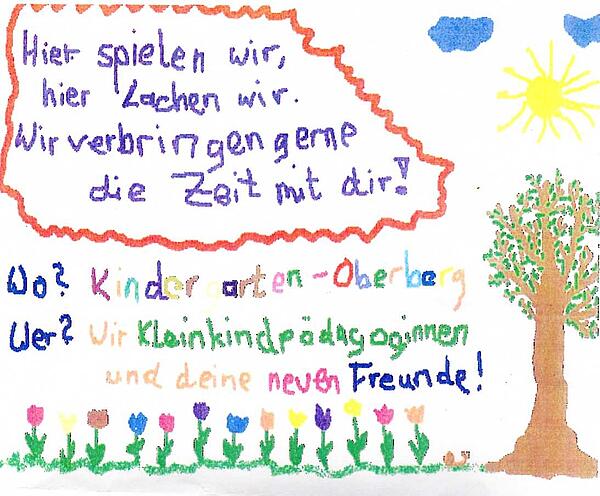 Hier spielen wir,
hier Lachen wir.
Wir verbringen gerne
die Zeit mit dir!
Wo? Kindergarten-Oberberg
Wer? Wir Kleinkindpädagoginnen
und deine neuen Freunde!